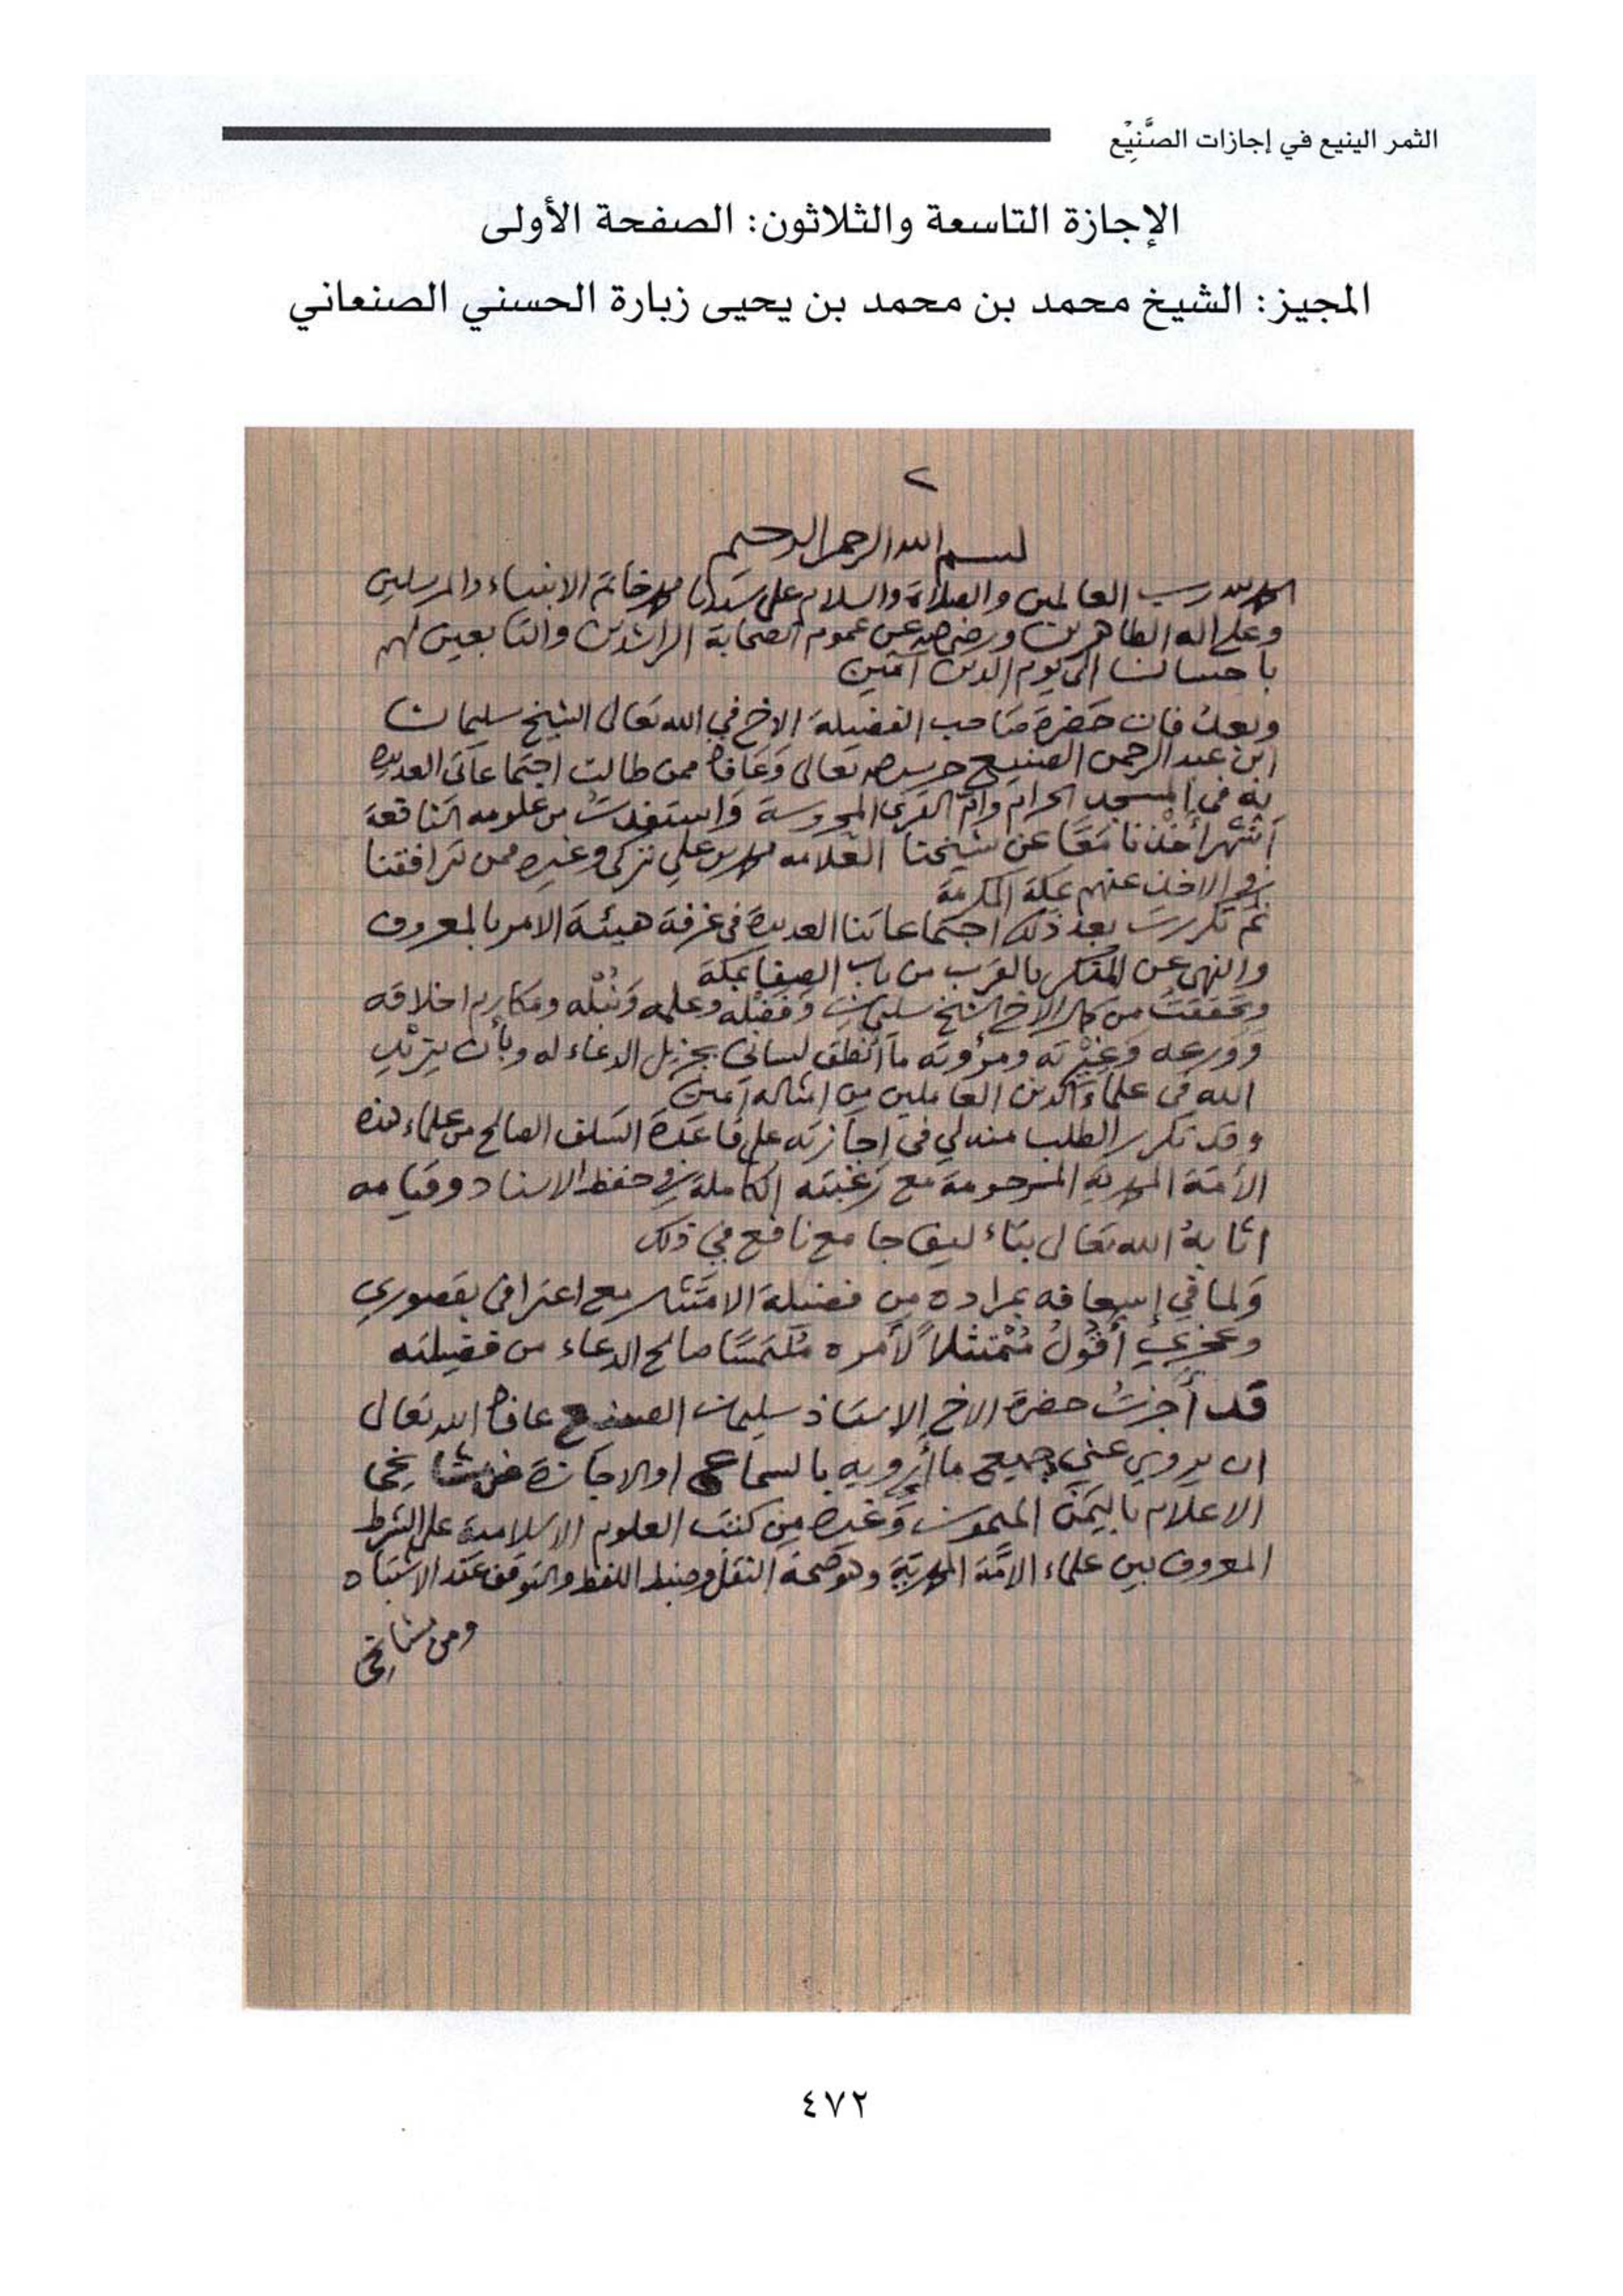 الثمر الينيع في إجازات الصَّنِيْع
الإجازة التاسعة والثلاثون: الصفحة الأولى
المجيز: الشيخ محمد بن محمد بن يحيى زبارة الحسني الصنعاني
٢
بسم الله الرحمن الرحيم
الحمد لله رب العالمين والصلاة والسلام على سيدنا محمد خاتم الانبياء والمرسلين
وعلى اله الطاهرين ورضي الله عن عموم الصحابة الراشدين والتابعين لهم
باحسان الى يوم الدين آمين
وبعد فان حضرة صاحب الفضيلة الاخ في الله تعالى الشيخ سليمان
ابن عبد الرحمن الصنيع حرسه الله تعالى وعافاه ممن طالت اجتماعاتي العديدة
به في المسجد الحرام وام القرى المحروسة واستفدت من علومه النافعة
أشهر أخذنا معًا عن شيخنا العلامه محمد بن علي تركي وغيره ممن ترافقنا
في الاخذ عنهم بمكة المكرمة
ثم تكررت بعد ذلك اجتماعاتنا العديدة في غرفة هيئة الامر بالمعروف
والنهي عن المنكر بالقرب من باب الصفا بمكة
وتحققت من كمال الاخ الشيخ سليمان وفضله وعلمه ونُبْله ومكارم اخلاقه
وورعه وغيرته ومرؤته ما انطق لساني بجزيل الدعاء له وبأن يزيد
الله في علماء الدين العاملين من امثاله آمين
وقد تكرر الطلب منه لي في إجازته على قاعدة السلف الصالح من علماء هذه
الأمة المحمدية المرحومة مع رغبته الكاملة في حفظ الاسناد وقيامه
اثابه الله تعالى بتاء ليف جامع نافع في ذلك
ولما في إسعافه بمراده من فضيلة الامتثال مع اعترافي بقصوري
وعجزي أقولُ مُمْتثلاً لأمره مُلتمسًا صالح الدعاء من فضيلته
قد أجزتُ حضرة الاخ الاستاذ سليمان الصنيع عافاه الله تعالى
ان يروي عني جميع ما أرويه بالسماع اوالاجازة عن مشايخي
الاعلام باليمن الميمون وغيره من كتب العلوم الاسلامية على الشرط
المعروف بين علماء الامّة المحمدية وهو صحة النقل وضبط اللفظ والتوقف عند الاشتباه
ومن مشايخي
٤٧٢